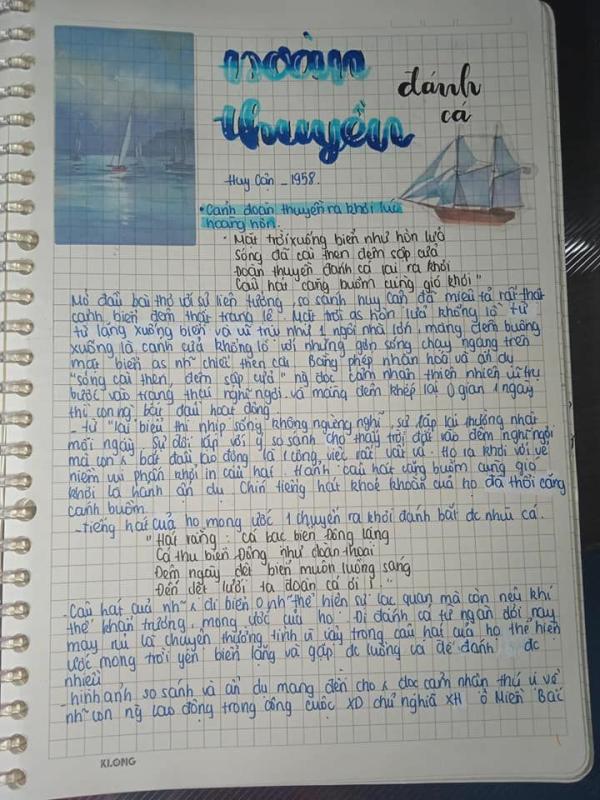 Đoàn
thuyền
đánh
cá
Huy Cận - 1958.
• Cảnh đoàn thuyền ra khơi lúc
hoàng hôn.
" Mặt trời xuống biển như hòn lửa
Sóng đã cài then đêm sập cửa
Đoàn thuyền đánh cá lại ra khơi
Câu hát căng buồm cùng gió khơi "
Mở đầu bài thơ với sự liên tưởng, so sánh Huy Cận đã miêu tả rất thật
cảnh biển đêm thật tráng lệ. Mặt trời as hòn lửa khổng lồ từ
từ lặng xuống biển và vũ trụ như 1 ngôi nhà lớn, màng đêm buông
xuống là cánh cửa khổng lồ với những gợn sóng chạy ngang trên
mặt biển as nh~ chiếc then cài. Bằng phép nhân hoá và ẩn dụ
"sóng cài then, đêm sập cửa" ng đọc cảm nhận thiên nhiên vũ trụ
bước vào trạng thái nghỉ ngơi và màng đêm khép lại 0 gian 1 ngày
thì con ng bắt đầu hoạt động.
- từ "lại" biểu thị nhịp sống không ngừng nghỉ, sự lặp lại thường nhật
mỗi ngày. Sự đối lập với ý so sánh cho thấy trời đất vào đêm nghỉ ngơi
mà con bắt đầu lao động là 1 công việc rất vất vả. Họ ra khơi với vẻ
niềm vui phấn khởi in câu hát. H/ảnh "câu hát căng buồm cùng gió
khơi là h/ảnh ẩn dụ. Chín tiếng hát khoẻ khoắn của họ đã thổi căng
cánh buồm.
- tiếng hát của họ mong ước 1 chuyến ra khơi đánh bắt đc nhìu cá.
" Hát rằng : cá bạc biển Đông lặng
Cá thu biển Đông như đoàn thoi
Đêm ngày dệt biển muôn luồng sáng
Đến dệt lưới ta đoàn cá ơi ! "
- Câu hát của nh~ đi biển 0 nh~ thể hiện sự lạc quan mà còn nêu khí
thế khẩn trương, mong ước của họ. Đi đánh cá từ ngàn đời nay
may rủi là chuyện thường tình vì vậy trong câu hát của họ thể hiện
ước mong trời yên biển lặng và gặp đc luồng cá để đánh đc
nhiều
- hình ảnh so sánh và ẩn dụ mang đến cho đọc cảm nhận thú vị về
nh~ con ng lao động trong công cuộc XD chủ nghĩa XH ở Miền Bắc
KLONG